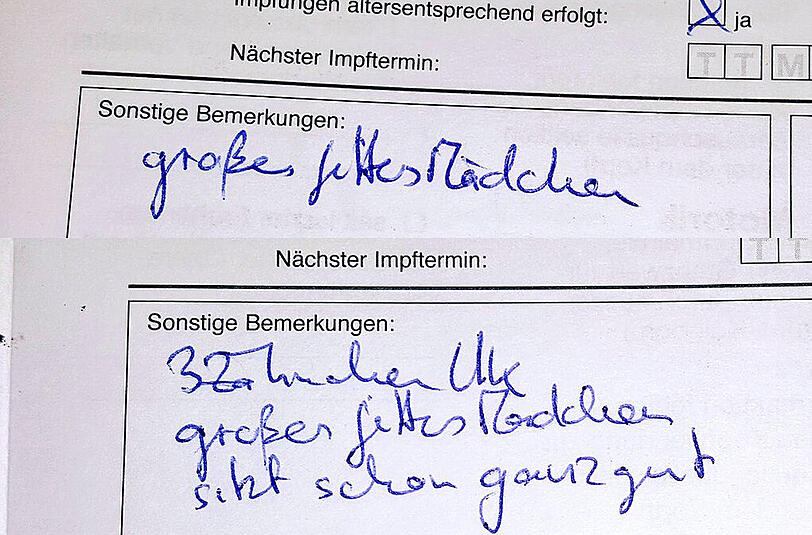 Impfungen altersentsprechend erfolgt: ja
Nächster Impftermin: T T M
Sonstige Bemerkungen:
großes fettes Mädchen
Nächster Impftermin: T T
Sonstige Bemerkungen:
3 Zähnchen UK
großes fettes Mädchen
sitzt schon ganz gut